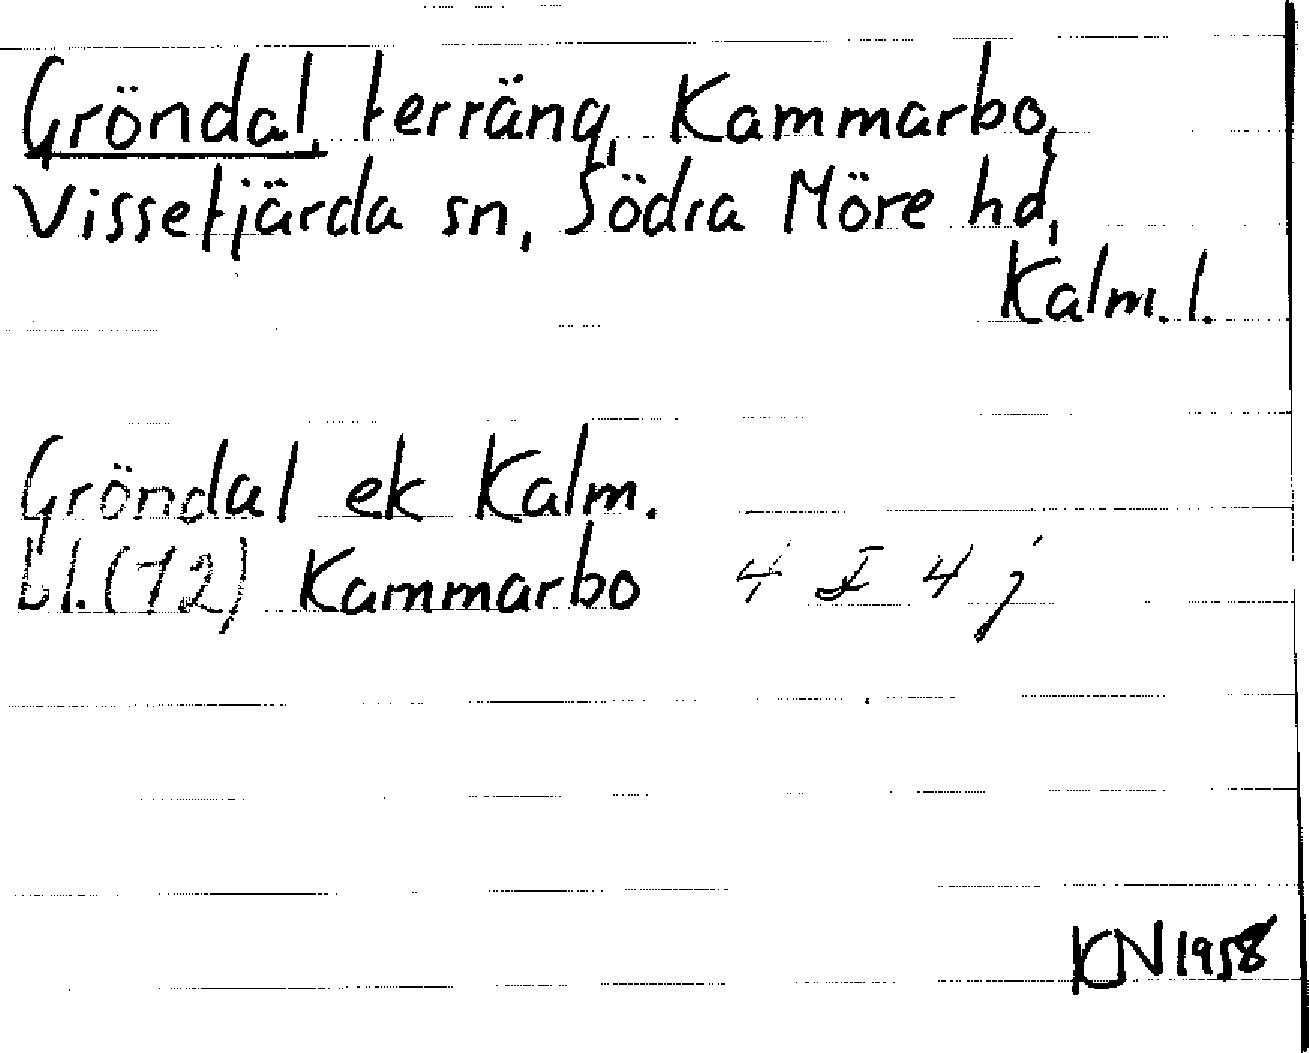 Gröndal, terräng, Kammarbo,
Vissefjärda sn, Södra Möre hd,
Kalm. l.
Gröndal ek Kalm.
bl. (12) Kammarbo 4 F 4 j
KN 1958